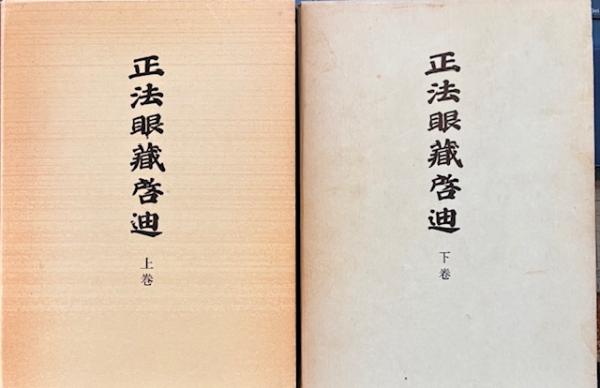 正法眼蔵啓迪
上巻
正法眼蔵啓迪
下巻